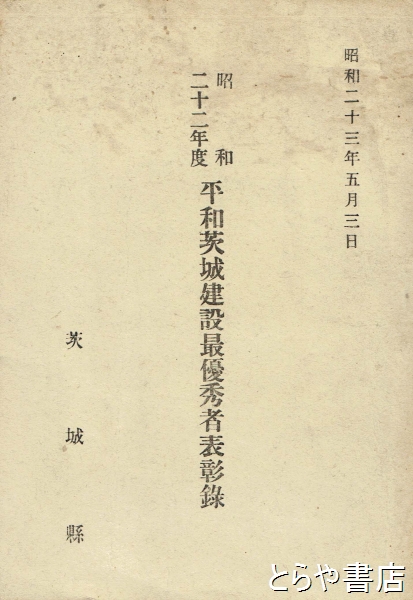 昭和二十三年五月三日
昭和
二十二年度
平和茨城建設最優秀者表彰錄
茨城縣
とらや書店